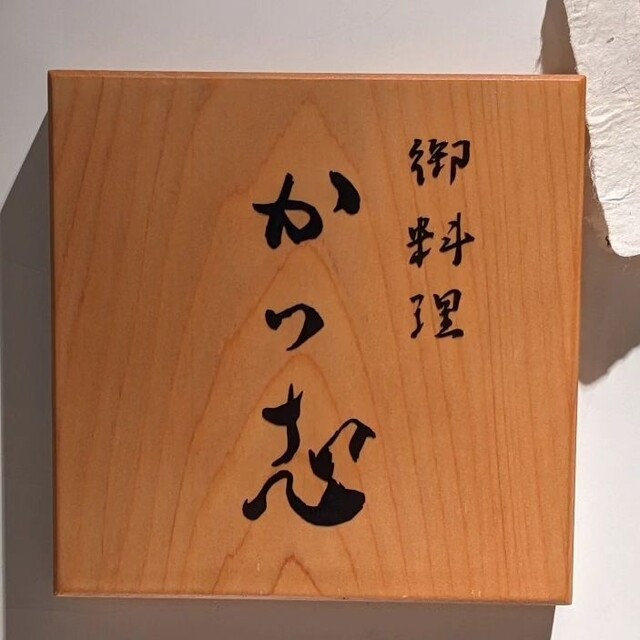 御料理
かつ志